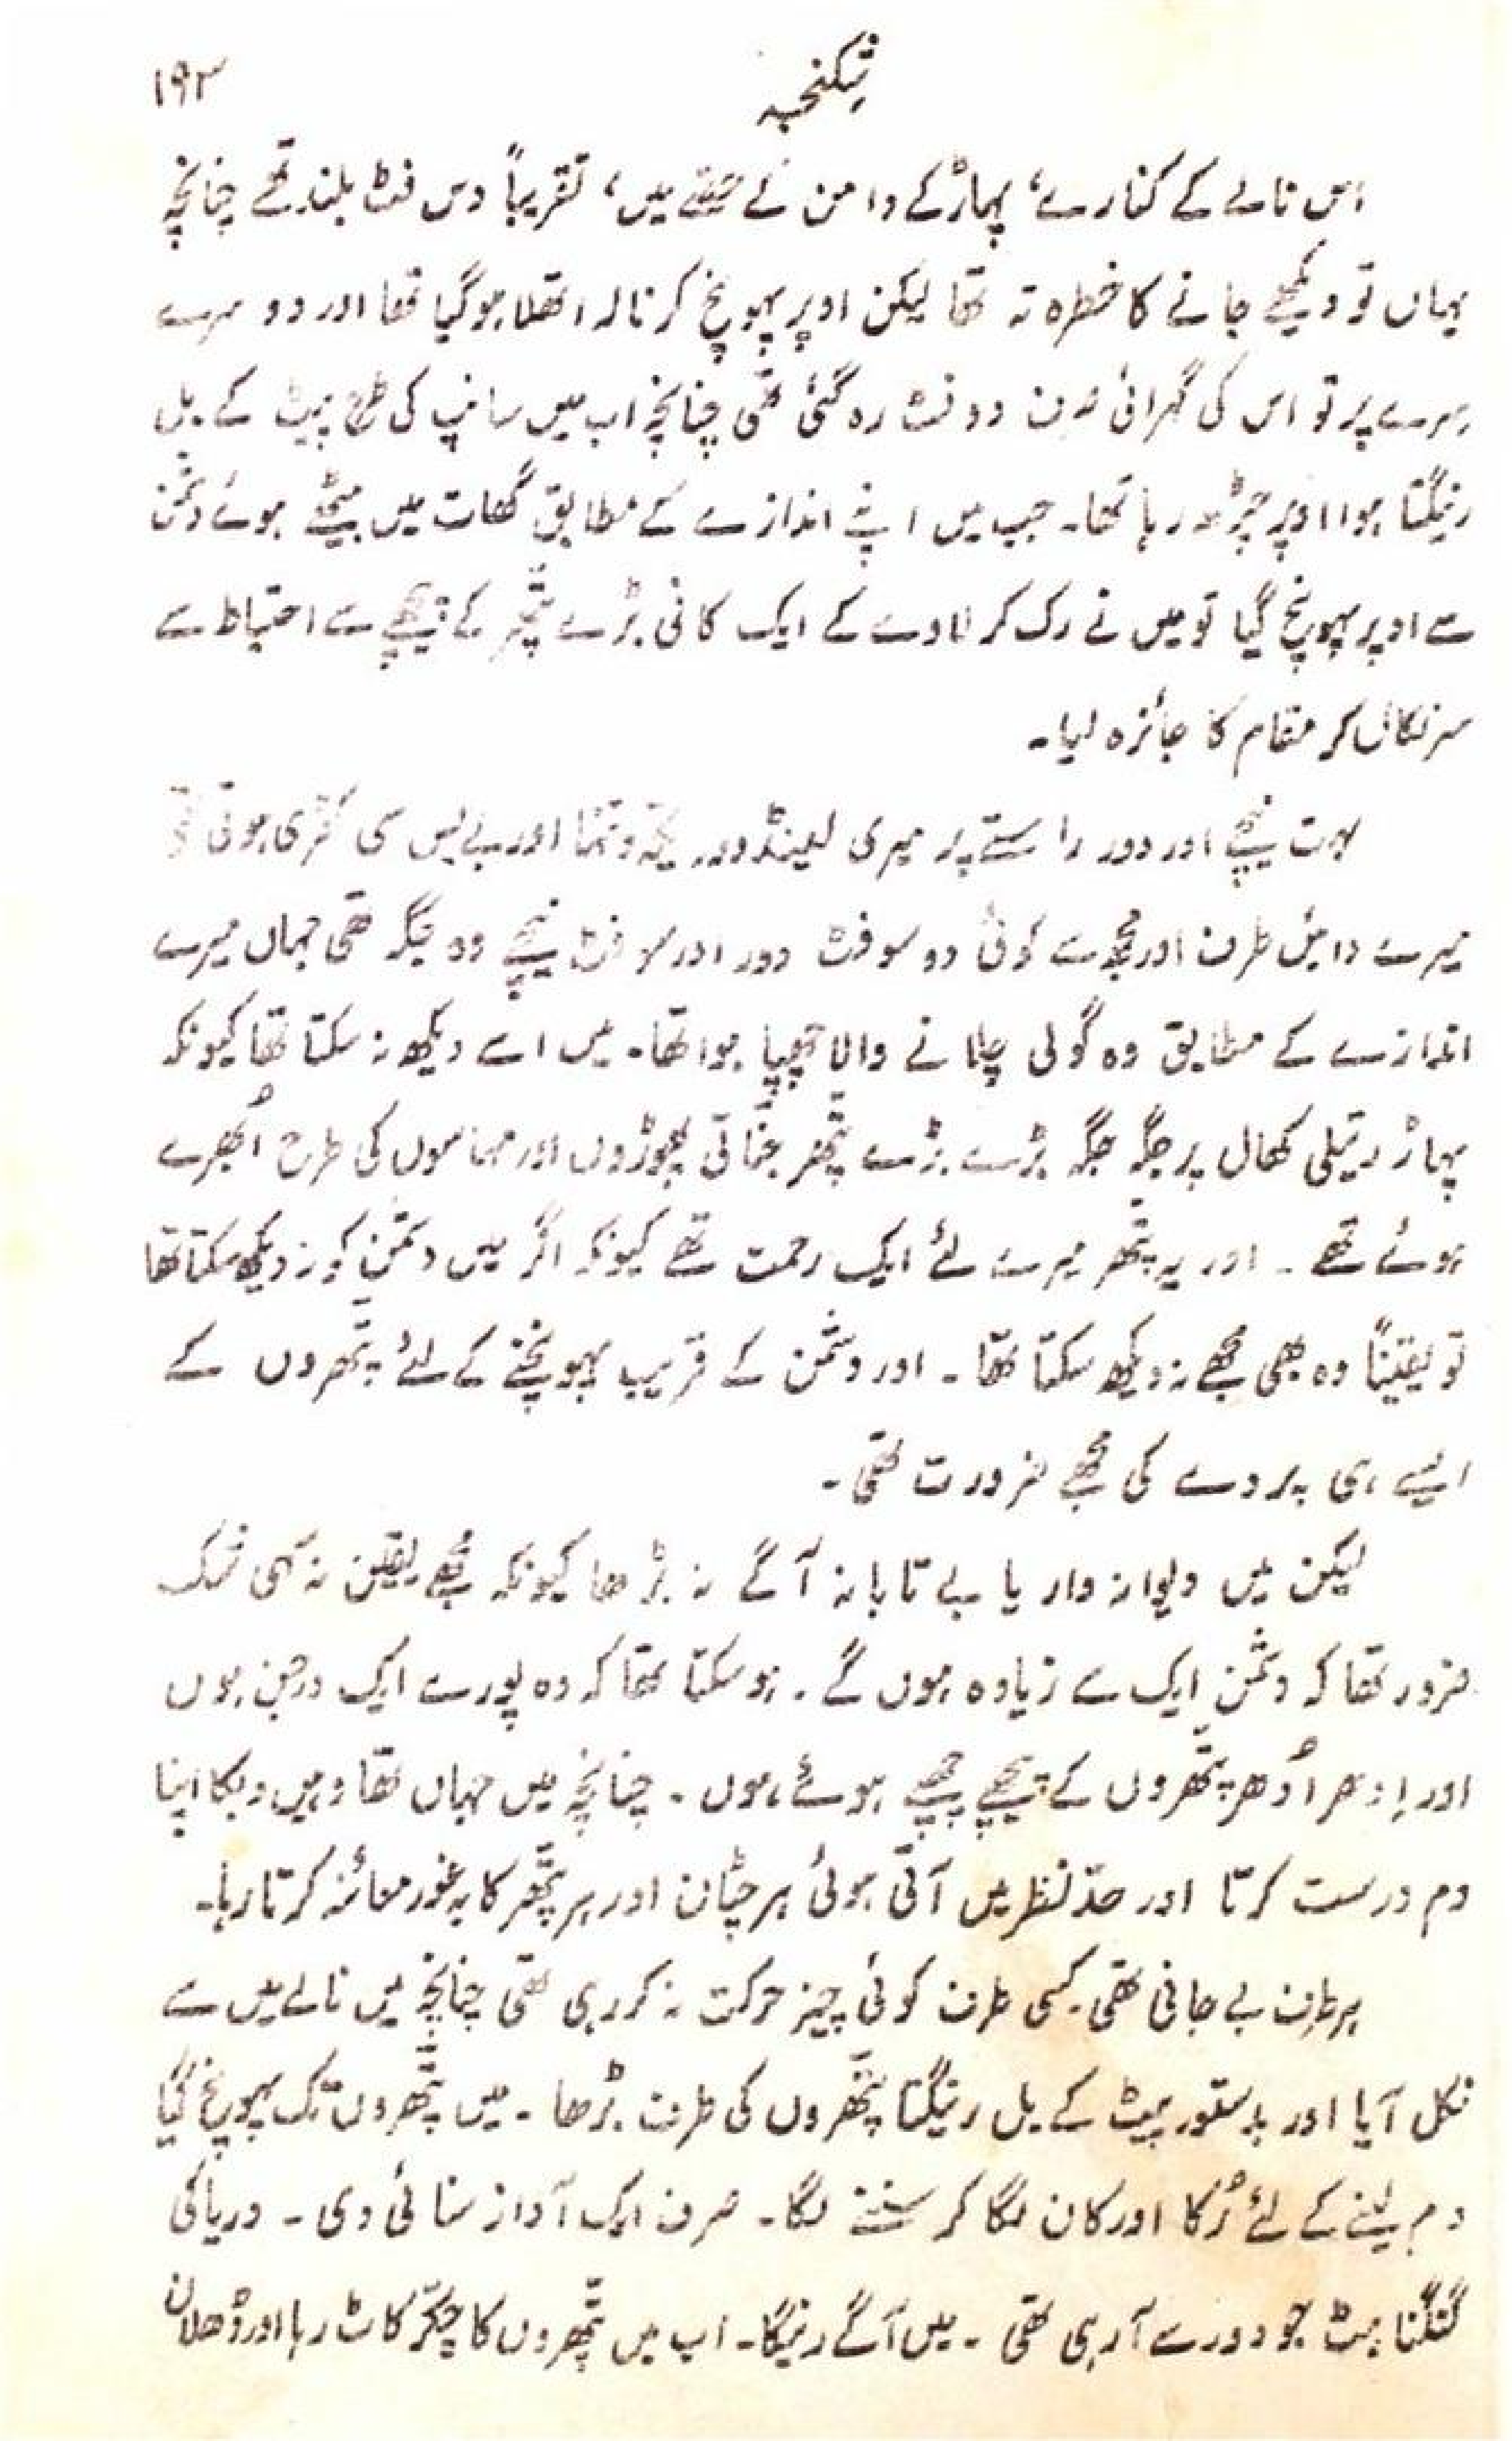 ۱۹۳
شکنجہ
اس نالے کے کنارے، پہاڑ کے دامن کے حصّے میں، تقریباً دس فٹ بلند تھے چنانچہ
یہاں تو دیکھے جانے کا خطرہ نہ تھا لیکن اوپر پہونچ کر نالہ اتھلا ہو گیا تھا اور دوسرے
سرے پر تو اس کی گہرائی صرف دو فٹ رہ گئی تھی چنانچہ اب میں سانپ کی طرح پیٹ کے بل
رینگتا ہوا اوپر چڑھ رہا تھا۔ جب میں اپنے اندازے کے مطابق گھات میں بیٹھے ہوئے دشمن
سے اوپر پہونچ گیا تو میں نے رک کر لاوے کے ایک کافی بڑے پتّھر کے پیچھے سے احتیاط سے
سر نکال کر مقام کا جائزہ لیا۔
بہت نیچے اور دور راستے پر میری لینڈ روور یکّہ و تنہا اور بے بس سی کھڑی ہوئی تھی
میرے دائیں طرف اور مجھ سے کوئی دو سو فٹ دور اور سو فٹ نیچے وہ جگہ تھی جہاں میرے
اندازے کے مطابق وہ گولی چلانے والا چھپا ہوا تھا۔ میں اسے دیکھ نہ سکتا تھا کیونکہ
پہاڑ ریتلی کھال پر جگہ جگہ بڑے بڑے پتّھر جنّاتی پھوڑوں اور مہاسوں کی طرح اُبھرے
ہوئے تھے۔ اور یہ پتّھر میرے لئے ایک رحمت تھے کیونکہ اگر میں دشمن کو نہ دیکھ سکتا تھا
تو یقیناً وہ بھی مجھے نہ دیکھ سکتا تھا۔ اور دشمن کے قریب پہونچنے کے لئے پتّھروں کے
ایسے ہی پردے کی مجھے ضرورت تھی۔
لیکن میں دیوانہ وار یا بے تابانہ آگے نہ بڑھا کیونکہ مجھے یقین نہ سہی شک
ضرور تھا کہ دشمن ایک سے زیادہ ہوں گے۔ ہو سکتا تھا کہ وہ پورے ایک درجن ہوں
اور اِدھر اُدھر پتّھروں کے پیچھے چھپے ہوئے ہوں۔ چنانچہ میں جہاں تھا وہیں دبکا اپنا
دم درست کرتا اور حدّ نظر میں آتی ہوئی ہر چٹان اور ہر پتّھر کا بہ غور معائنہ کرتا رہا۔
ہر طرف بے جانی تھی۔ کسی طرف کوئی چیز حرکت نہ کر رہی تھی چنانچہ میں نالے میں سے
نکل آیا اور بدستور پیٹ کے بل رینگتا پتّھروں کی طرف بڑھا۔ میں پتّھروں تک پہونچ گیا
دم لینے کے لئے رُکا اور کان لگا کر سننے لگا۔ صرف ایک آواز سنائی دی۔ دریا کی
گنگناہٹ جو دور سے آ رہی تھی۔ میں آگے رینگا۔ اب میں پتّھروں کا چکّر کاٹ رہا اور ڈھلان